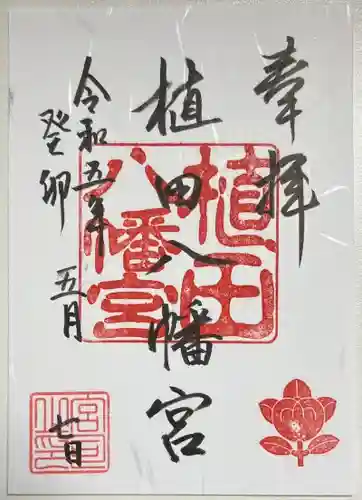 奉拝
植田八幡宮
令和五年
癸卯
五月
七日
植田
八幡宮